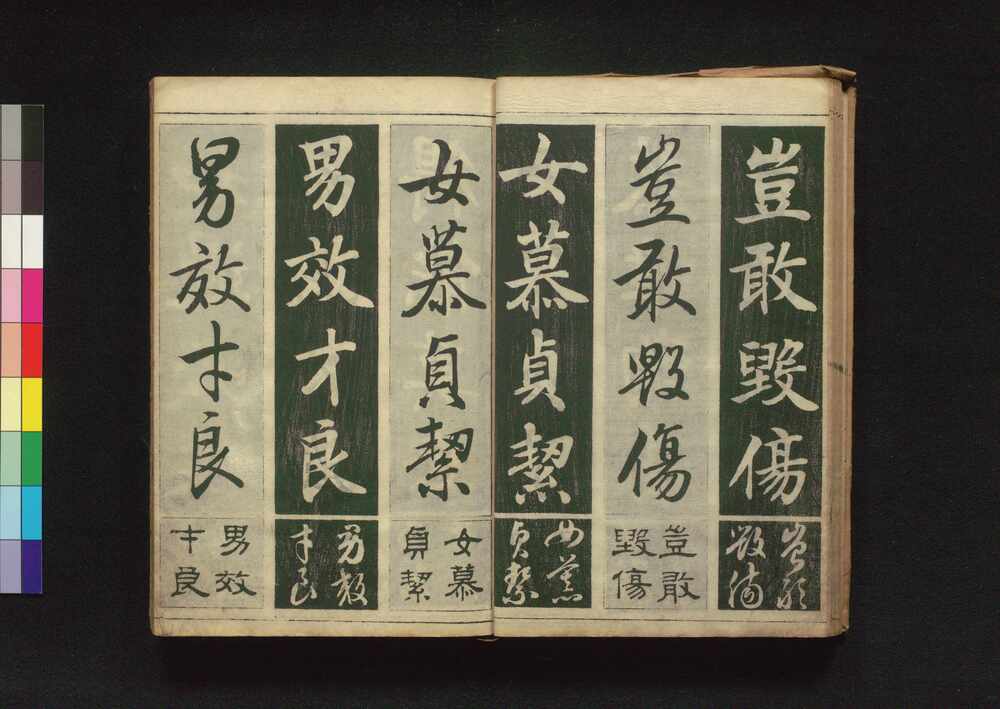 豈敢毀傷
豈敢
毀傷
豈敢毀傷
豈敢
毀傷
女慕貞絜
女慕
貞絜
女慕貞絜
女慕
貞絜
男效才良
男效
才良
男效才良
男效
才良